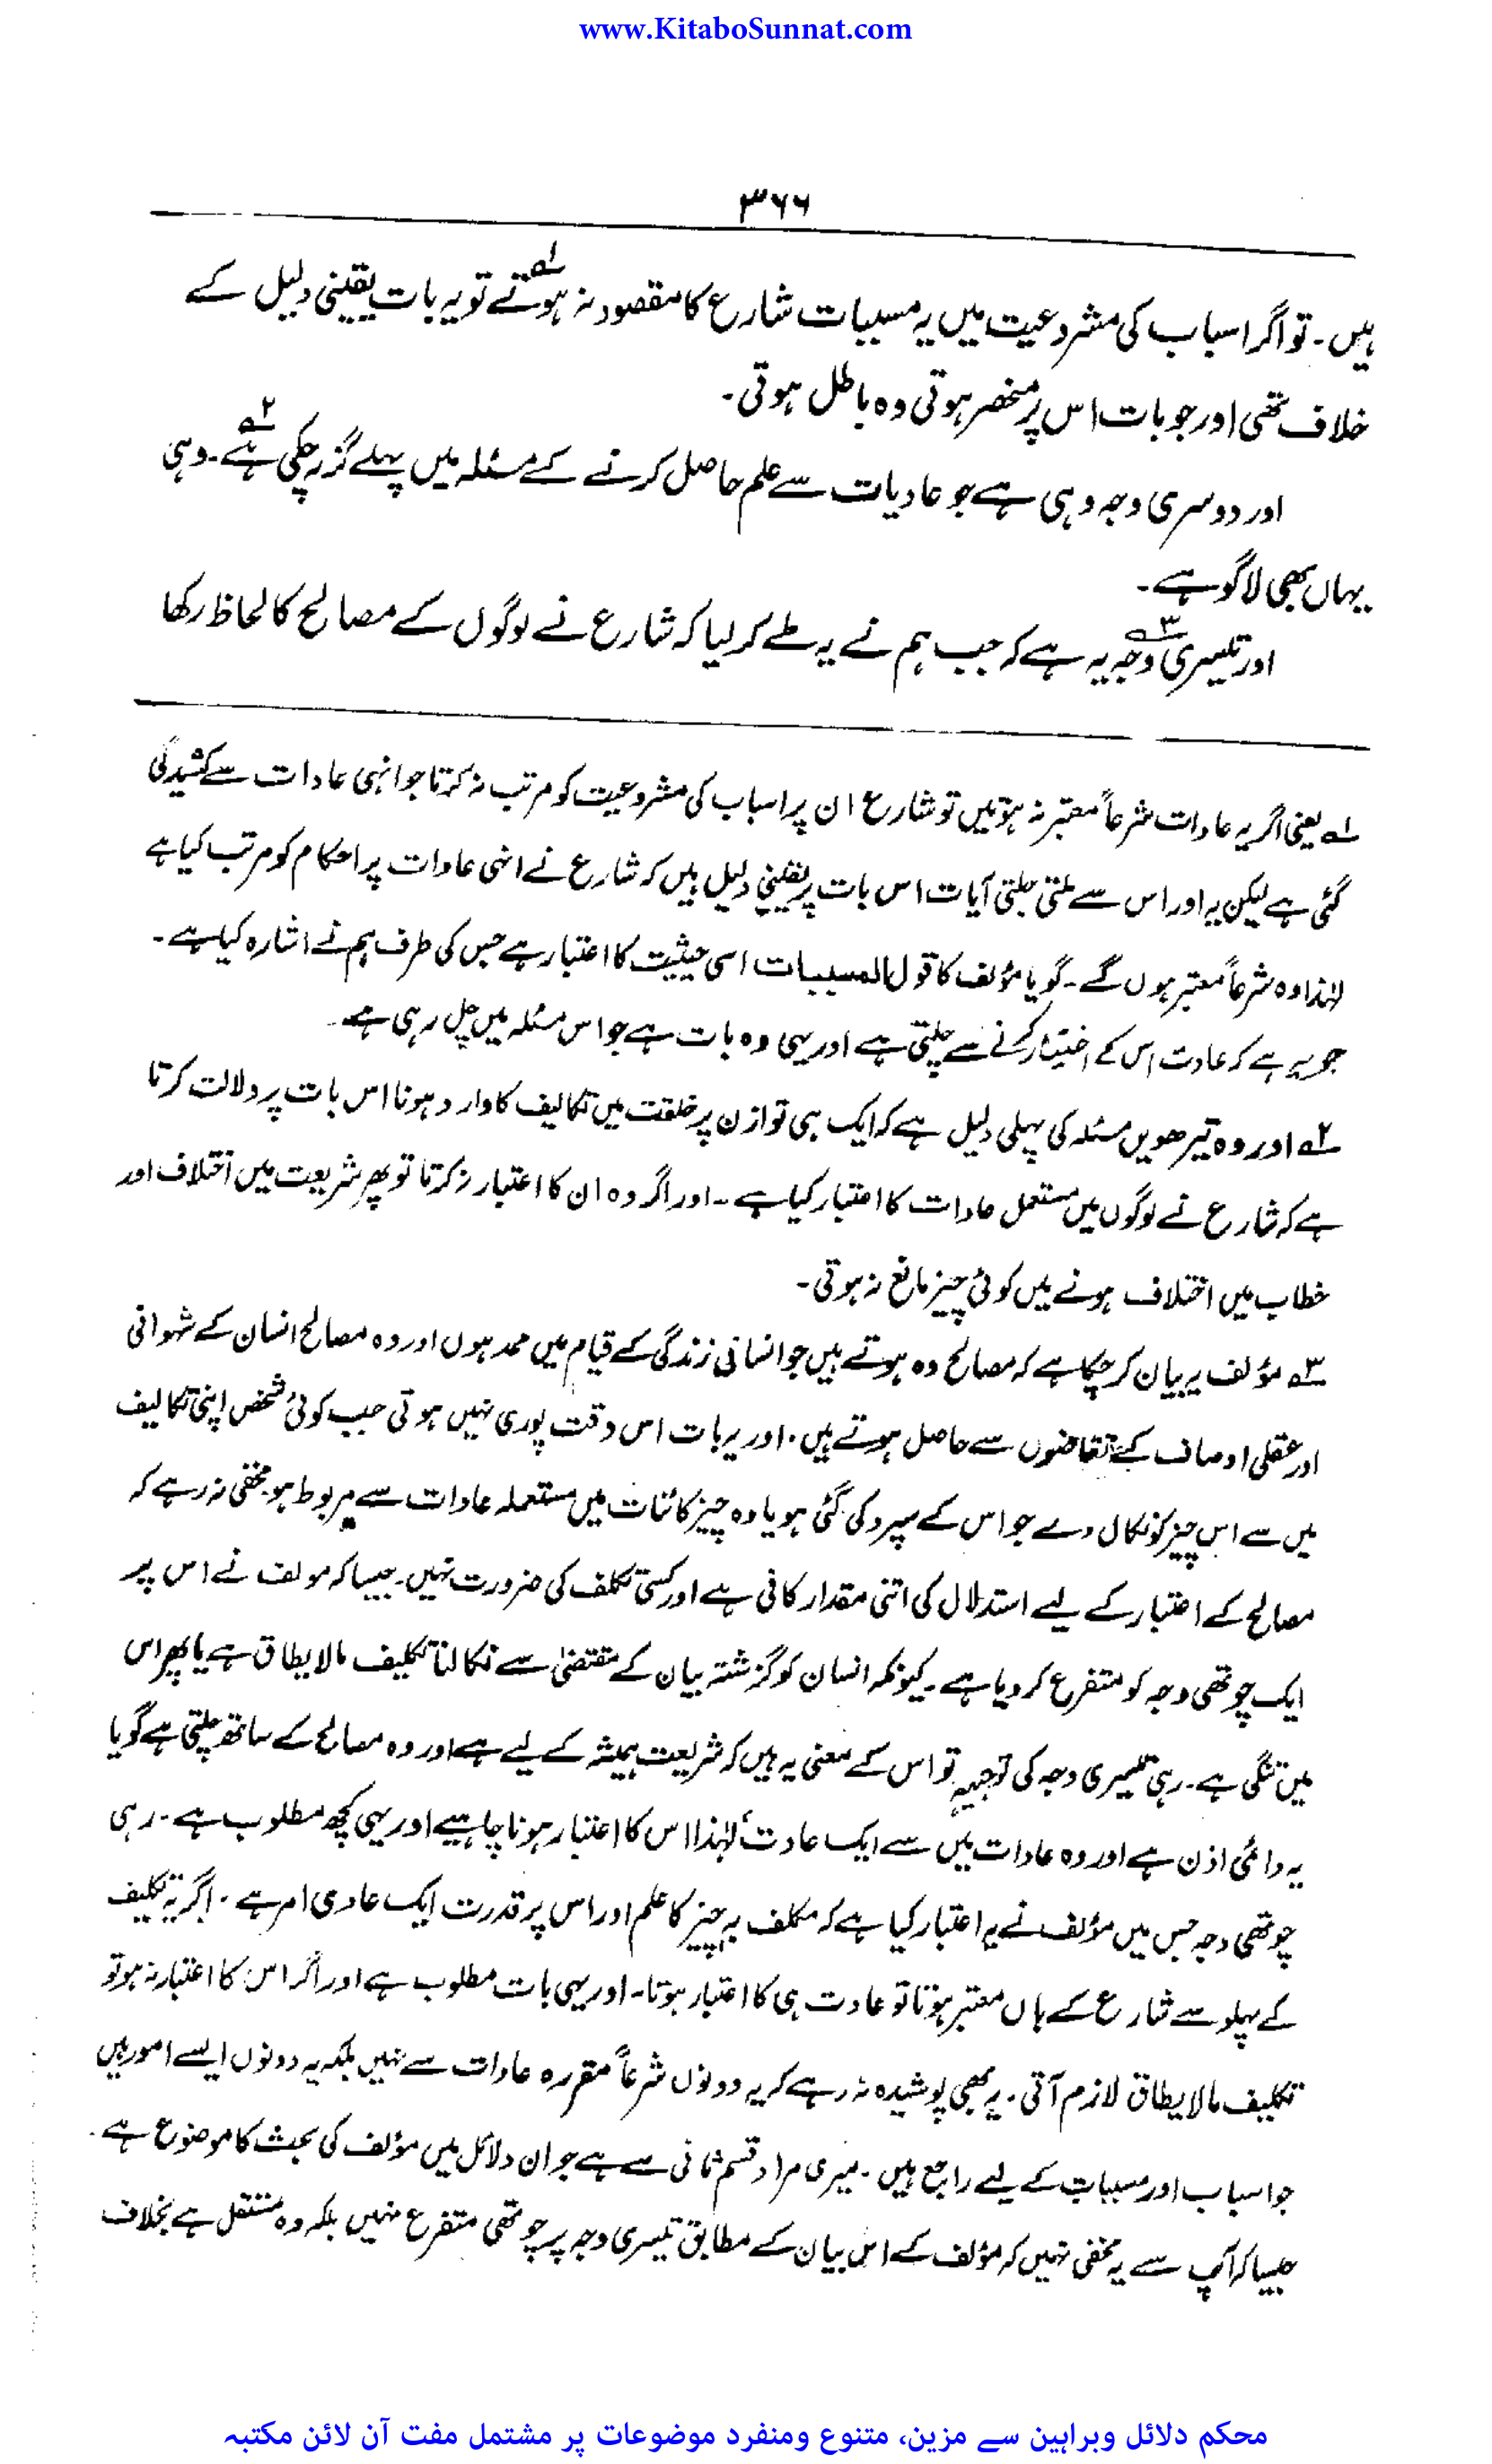 www.KitaboSunnat.com
۳۶۶
ہیں۔ تو اگر اسباب کی مشروعیت میں یہ مسببات شارع کا مقصود نہ ہوتے۱؎ تو یہ بات یقینی دلیل کے
خلاف تھی اور جو بات اس پر منحصر ہوتی وہ باطل ہوتی۔
اور دوسری وجہ وہی ہے جو عادیات سے علم حاصل کرنے کے مسئلہ میں پہلے گزر چکی ہے۲؎۔ وہی
یہاں بھی لاگو ہے۔
اور تیسری۳؎ وجہ یہ ہے کہ جب ہم نے یہ طے کر لیا کہ شارع نے لوگوں کے مصالح کا لحاظ رکھا
۱؎ یعنی اگر یہ عادات شرعاً معتبر نہ ہوتیں تو شارع ان پر اسباب کی مشروعیت کو مرتب نہ کرتا جو انہی عادات سے کشید کی
گئی ہے لیکن یہ اور اس سے ملتی جلتی آیات اس بات پر یقینی دلیل ہیں کہ شارع نے انہی عادات پر احکام کو مرتب کیا ہے
لہٰذا وہ شرعاً معتبر ہوں گے۔ گویا مؤلف کا قول المسببات اسی حیثیت کا اعتبار ہے جس کی طرف ہم نے اشارہ کیا ہے۔
جو یہ ہے کہ عادت اس کے اختیار کرنے سے چلتی ہے اور یہی وہ بات ہے جو اس مسئلہ میں چل رہی ہے۔
۲؎ اور وہ تیرھویں مسئلہ کی پہلی دلیل ہے کہ ایک ہی توازن پر خلقت میں تکالیف کا وارد ہونا اس بات پر دلالت کرتا
ہے کہ شارع نے لوگوں میں مستعمل عادات کا اعتبار کیا ہے۔ اور اگر وہ ان کا اعتبار نہ کرتا تو پھر شریعت میں اختلاف اور
خطاب میں اختلاف ہونے میں کوئی چیز مانع نہ ہوتی۔
۳؎ مؤلف یہ بیان کر چکا ہے کہ مصالح وہ ہوتے ہیں جو انسانی زندگی کے قیام میں ممد ہوں اور وہ مصالح انسان کے شہوانی
اور عقلی اوصاف کے تقاضوں سے حاصل ہوتے ہیں۔ اور یہ بات اس وقت پوری نہیں ہوتی جب کوئی شخص اپنی تکالیف
میں سے اس چیز کو نکال دے جو اس کے سپرد کی گئی ہو یا وہ چیز کائنات میں مستعملہ عادات سے مربوط ہو مخفی نہ رہے کہ
مصالح کے اعتبار کے لیے استدلال کی اتنی مقدار کافی ہے اور کسی تکلف کی ضرورت نہیں۔ جیسا کہ مولف نے اس پر
ایک چوتھی وجہ کو متفرع کر دیا ہے۔ کیونکہ انسان کو گزشتہ بیان کے مقتضیٰ سے نکالنا تکلیف مالا یطاق ہے یا پھر اس
میں تنگی ہے۔ رہی تیسری وجہ کی توجیہہ تو اس کے معنی یہ ہیں کہ شریعت ہمیشہ کے لیے ہے اور وہ مصالح کے ساتھ چلتی ہے گویا
یہ دائمی اذن ہے اور وہ عادات میں سے ایک عادت ہے لہٰذا اس کا اعتبار ہونا چاہیے اور یہی کچھ مطلوب ہے۔ رہی
چوتھی وجہ جس میں مؤلف نے یہ اعتبار کیا ہے کہ مکلف بہ چیز کا علم اور اس پر قدرت ایک عادی امر ہے۔ اگر یہ تکلیف
کے پہلو سے شارع کے ہاں معتبر ہوتا تو عادت ہی کا اعتبار ہوتا۔ اور یہی بات مطلوب ہے اور اگر اس کا اعتبار نہ ہو تو
تکلیف مالا یطاق لازم آتی۔ یہ بھی پوشیدہ نہ رہے کہ یہ دونوں شرعاً مقررہ عادات سے نہیں بلکہ یہ دونوں ایسے امور ہیں
جو اسباب اور مسببات کے لیے راجع ہیں۔ میری مراد قسم ثانی سے ہے جو ان دلائل میں مؤلف کی بحث کا موضوع ہے۔
جیسا کہ آپ سے یہ مخفی نہیں کہ مؤلف کے اس بیان کے مطابق تیسری وجہ پر چوتھی متفرع نہیں بلکہ وہ مستقل ہے بخلاف
محکم دلائل وبراہین سے مزین، متنوع ومنفرد موضوعات پر مشتمل مفت آن لائن مکتبہ